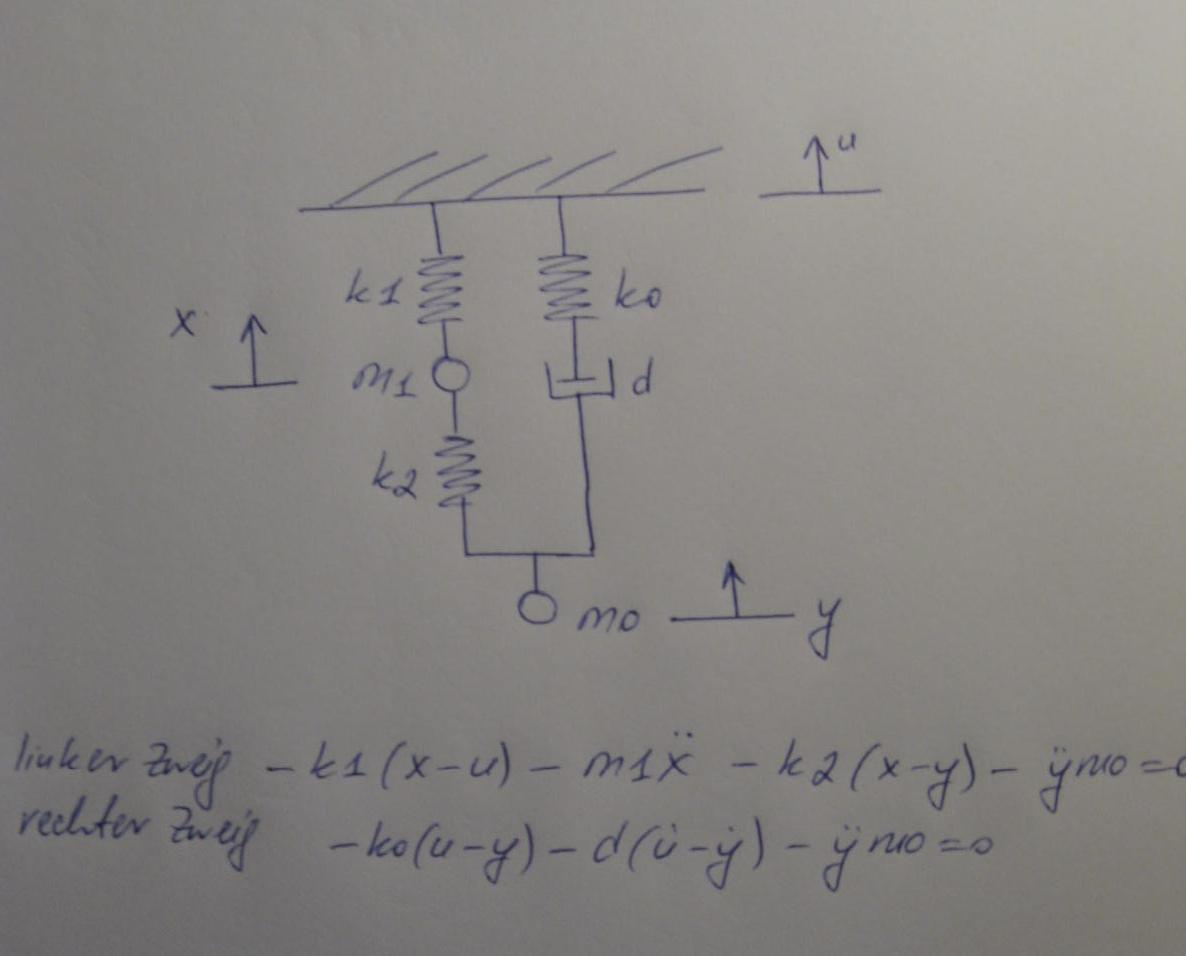 u
k1
k0
x
m1
d
k2
m0
y
linker Zweig -k1(x-u) - m1ẍ - k2(x-y) - ÿm0=0
rechter Zweig -k0(u-y) - d(u̇-ẏ) - ÿm0=0